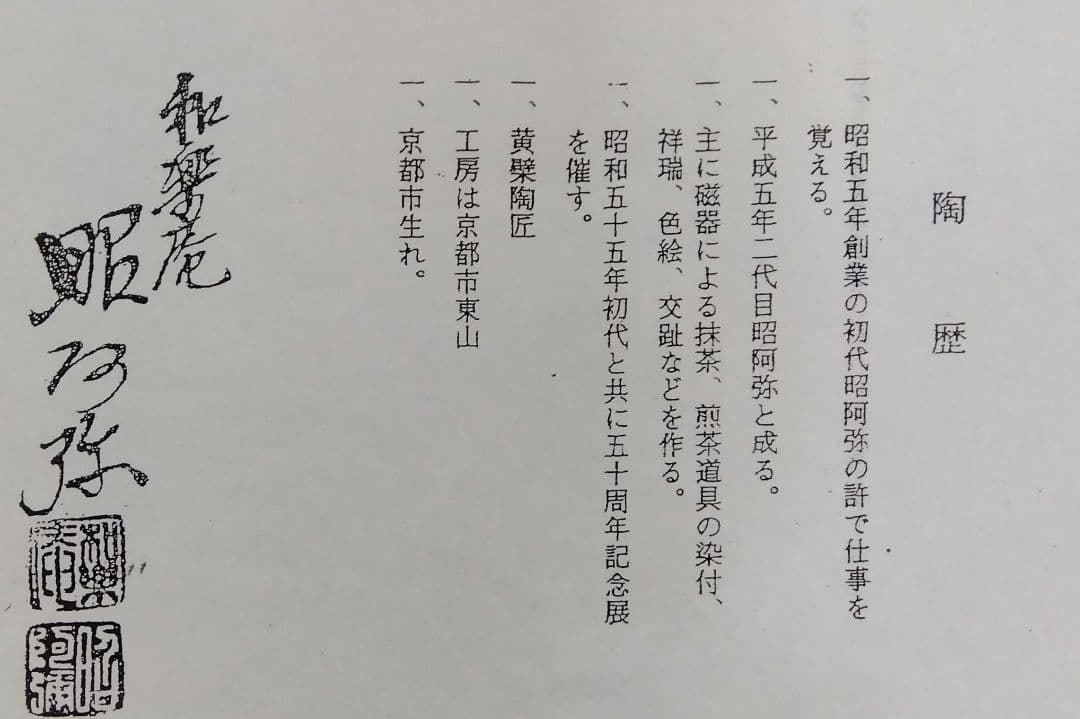 陶歴
一、昭和五年創業の初代昭阿弥の許で仕事を
覚える。
一、平成五年二代目昭阿弥と成る。
一、主に磁器による抹茶、煎茶道具の染付、
祥瑞、色絵、交趾などを作る。
一、昭和五十五年初代と共に五十周年記念展
を催す。
一、黄檗陶匠
一、工房は京都市東山
一、京都市生れ。
和楽庵
昭阿弥
和楽庵
昭阿彌